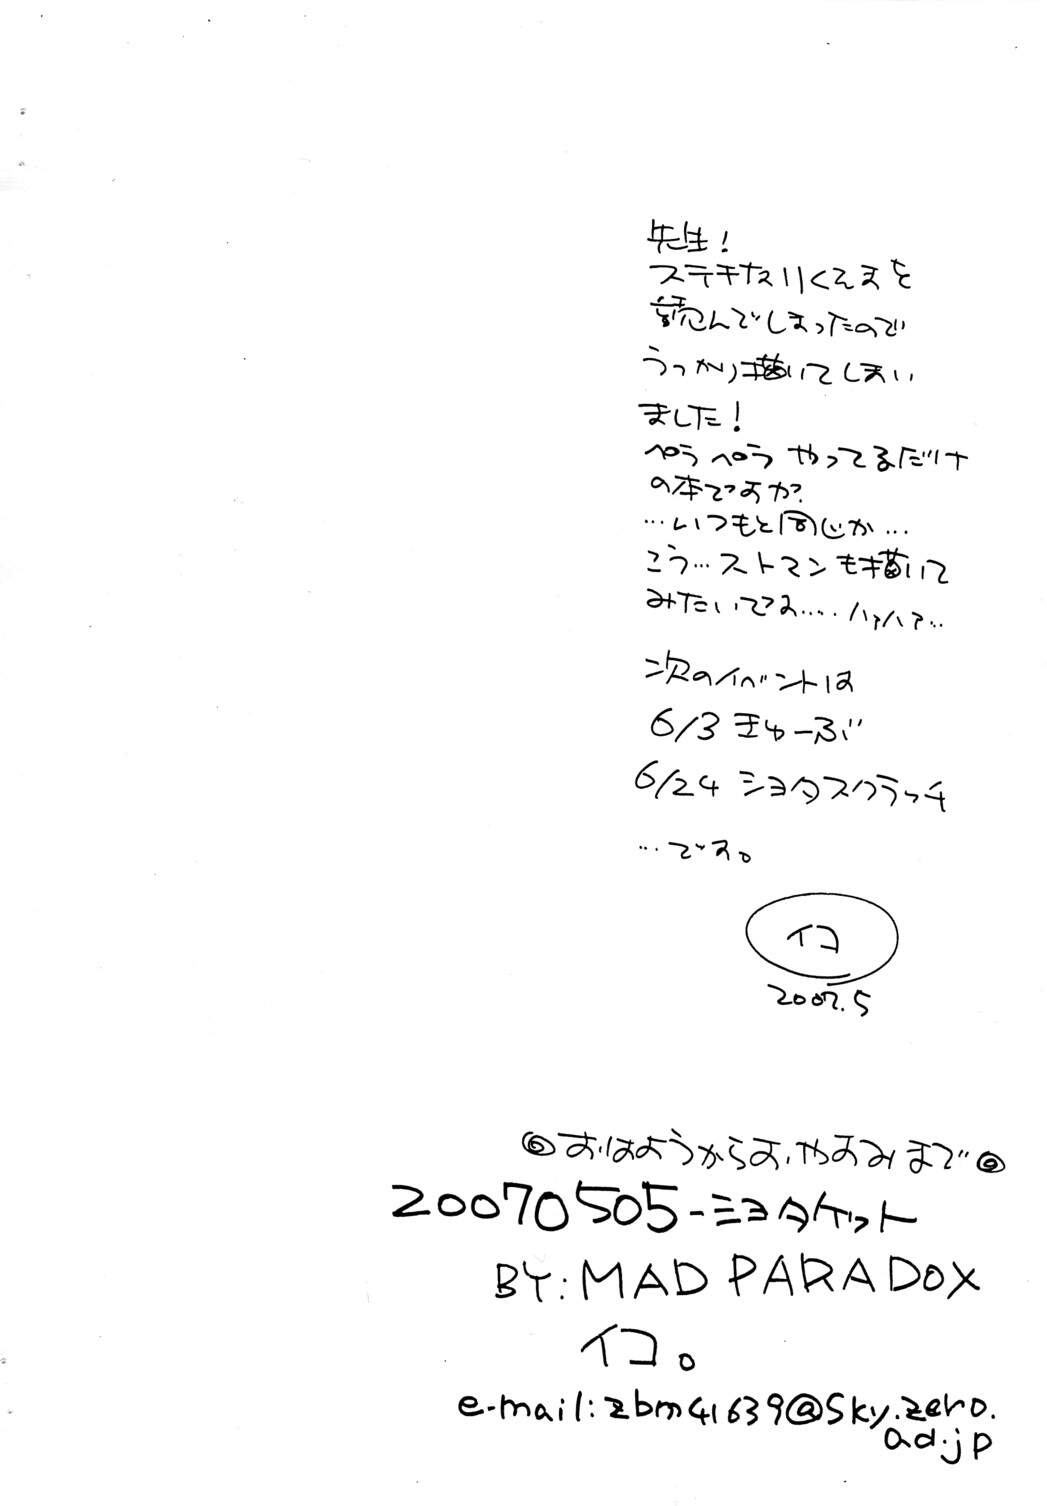 先生!
ステキなりくえすを
読んでしまったので
うっかり描いてしまい
ました!
ペラペラ やってるだけ
の本ですが?
…いつもと同じか…
こう…ストマンも描いて
みたいですよ…‥ハァハァ‥
次のイベントは
6/3 きゅーぶ
6/24 ショタスクラッチ
…です。
イコ
2007.5
◎おはようからおやすみまで◎
20070505-ショタケット
BY:MAD PARADOX
イコ。
e-mail:zbm41639@sky.zero.
ad.jp